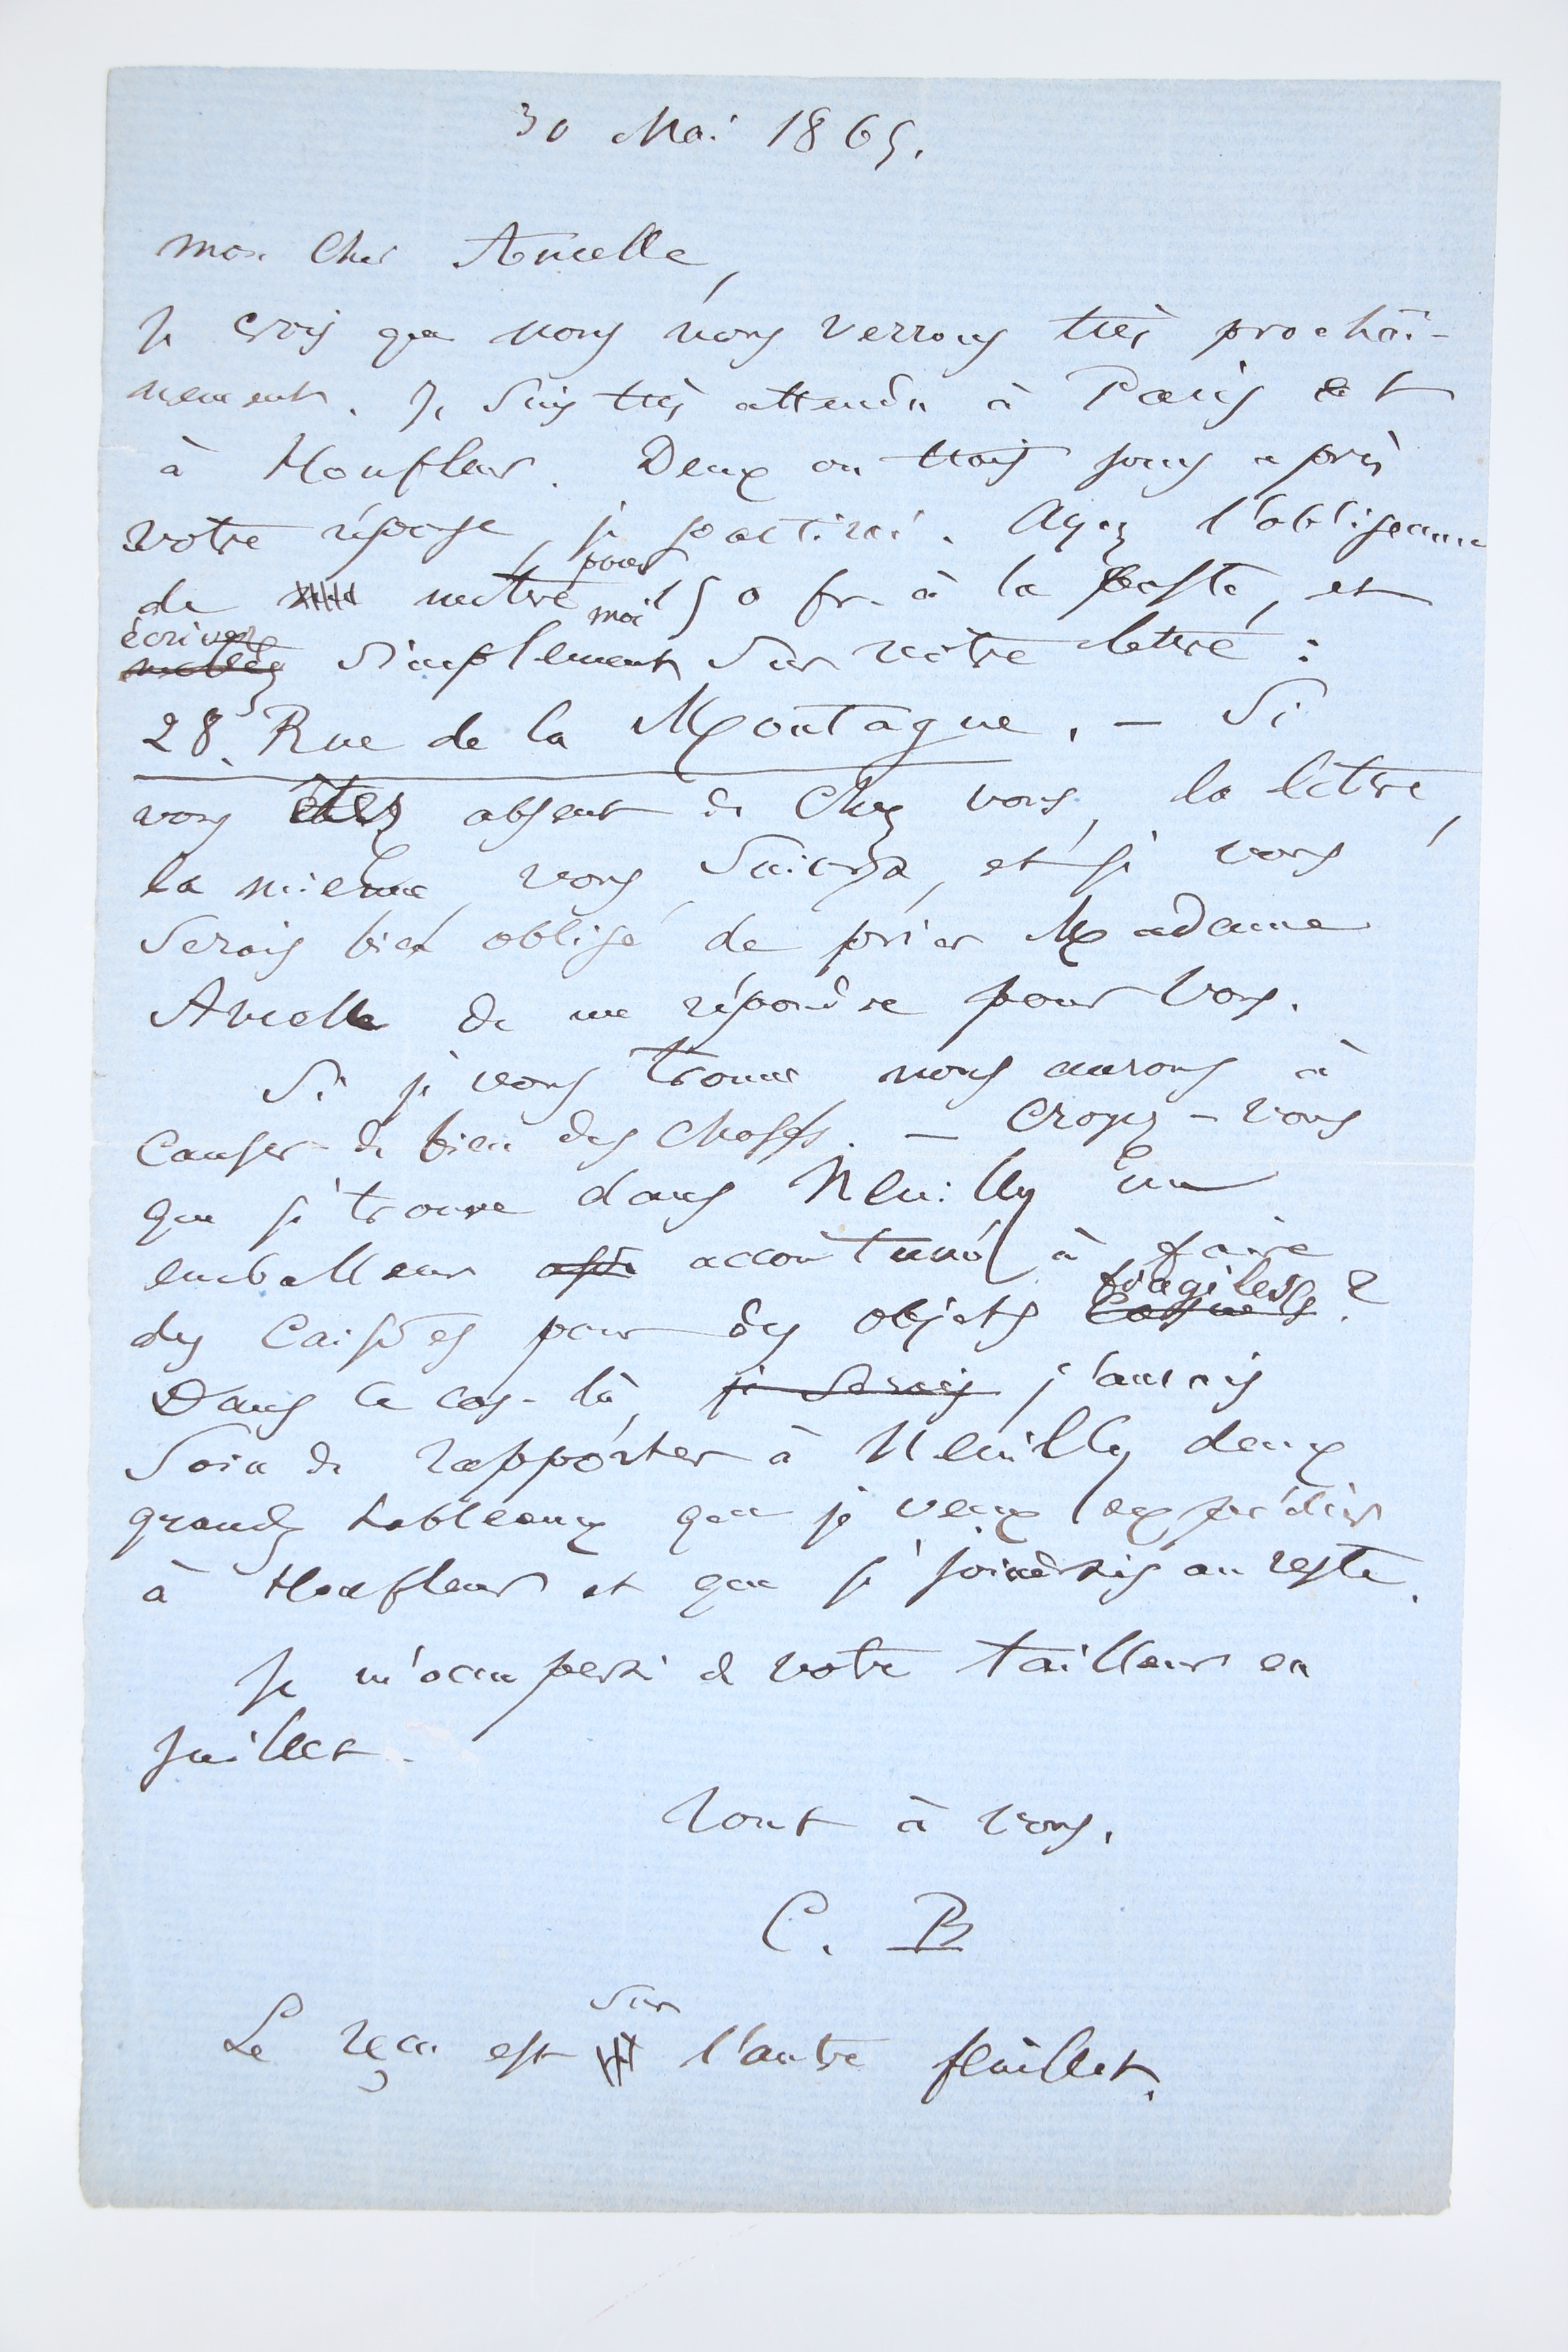 30 Mai 1865.
mon cher Ancelle,
Je crois que nous nous verrons très prochai-
nement. Je suis très attendu à Paris et
à Honfleur. Deux ou trois jours après
votre réponse, je partirai. Ayez l'obligeance
de mettre pour moi 150 fr. à la poste, et
écrivez mettez simplement sur votre lettre :
28, Rue de la Montagne. — Si
vous êtes absent de chez vous, la lettre,
la mienne, vous suivra, et je vous
serais bien obligé de prier Madame
Ancelle de me répondre pour vous.
Si je vous trouve, nous aurons à
causer de bien des choses. — Croyez-vous
que je trouve dans Neuilly un
emballeur accoutumé à faire
des caisses pour des objets fragiles ?
Dans ce cas-là, je serais j'aurais
soin de rapporter à Neuilly deux
grands tableaux que je veux expédier
à Honfleur et que je joindrais au reste.
Je m'occuperai de votre tailleur en
juillet.
Tout à vous.
C. B
Le reçu est sur l'autre feuillet.